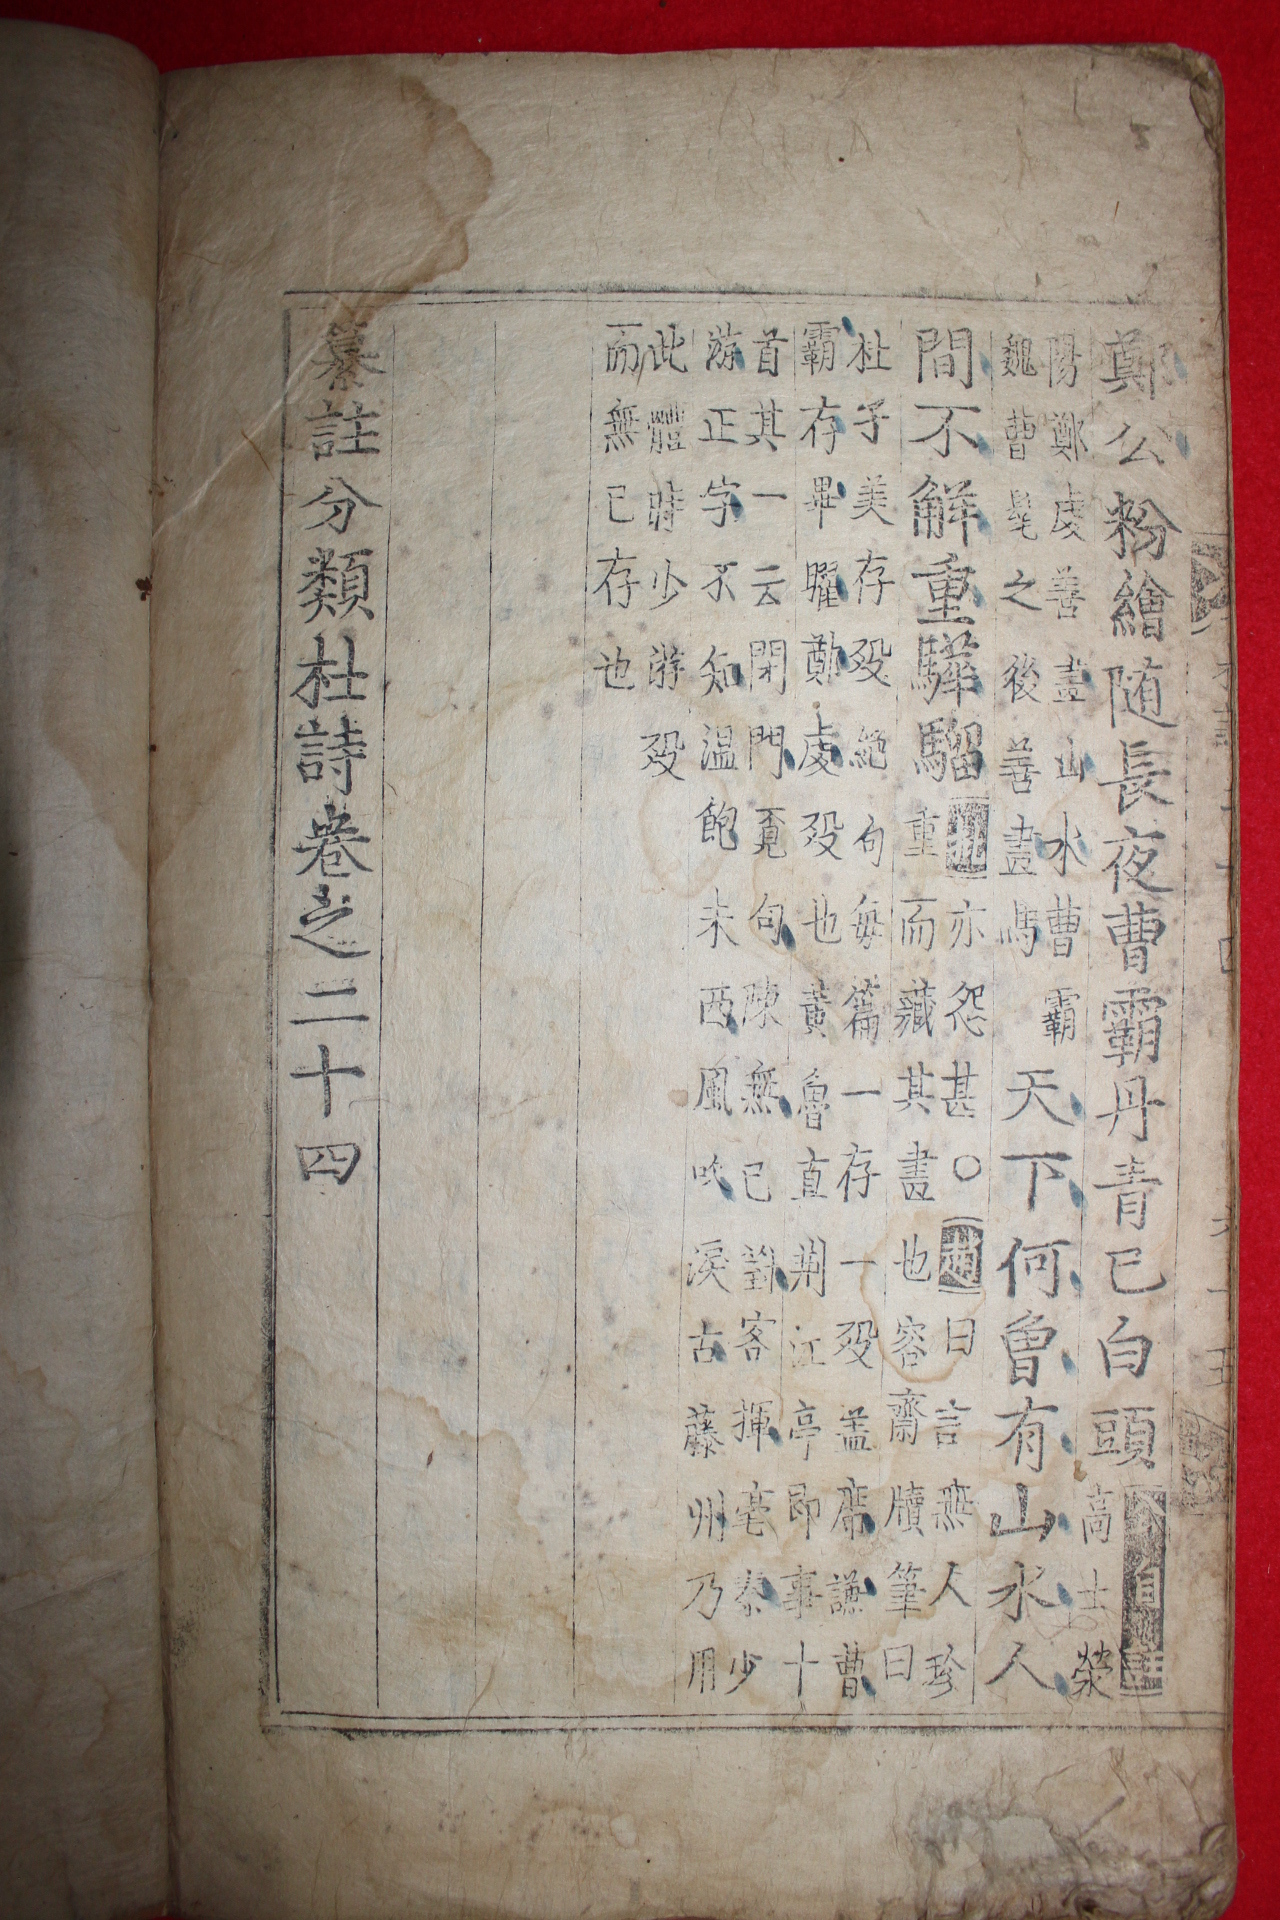 鄭公粉繪随長夜曹霸丹青已白頭
公自註
高士滎
陽鄭虔善畫山水曹霸
魏曹髦之後善畫馬
天下何曾有山水人
間不解重驊騮
亦怨甚○趙曰言無人珍
重而藏其畫也容齋牘筆曰
杜子美存殁絶句每篇一存一殁盖席謙曹
霸存畢曜鄭虔殁也黄魯直荆江亭即事十
首其一云閉門覓句陳無已對客揮毫秦少
游正字不知温飽未西風吹淚古藤州乃用
此體時少游殁
而無已存也
纂註分類杜詩卷之二十四